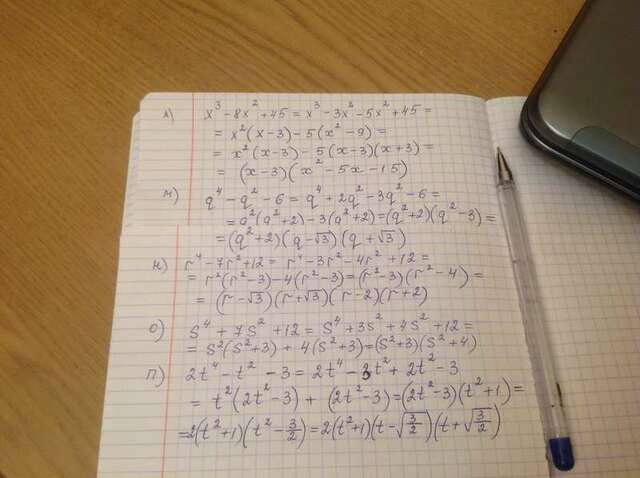 л) x³ - 8x² + 45 = x³ - 3x² - 5x² + 45 =
= x²(x-3) - 5(x² - 9) =
= x²(x-3) - 5(x-3)(x+3) =
= (x-3)(x² - 5x - 15)
м) q⁴ - q² - 6 = q⁴ + 2q² - 3q² - 6 =
= q²(q²+2) - 3(q²+2) = (q²+2)(q²-3) =
= (q²+2)(q-√3)(q+√3)
н) r⁴ - 7r² + 12 = r⁴ - 3r² - 4r² + 12 =
= r²(r²-3) - 4(r²-3) = (r²-3)(r²-4) =
= (r-√3)(r+√3)(r-2)(r+2)
о) S⁴ + 7S² + 12 = S⁴ + 3S² + 4S² + 12 =
= S²(S²+3) + 4(S²+3) = (S²+3)(S²+4)
п) 2t⁴ - t² - 3 = 2t⁴ - 3t² + 2t² - 3
= t²(2t²-3) + (2t²-3) = (2t²-3)(t²+1) =
= 2(t²+1)(t² - 3/2) = 2(t²+1)(t-√(3/2))(t+√(3/2))